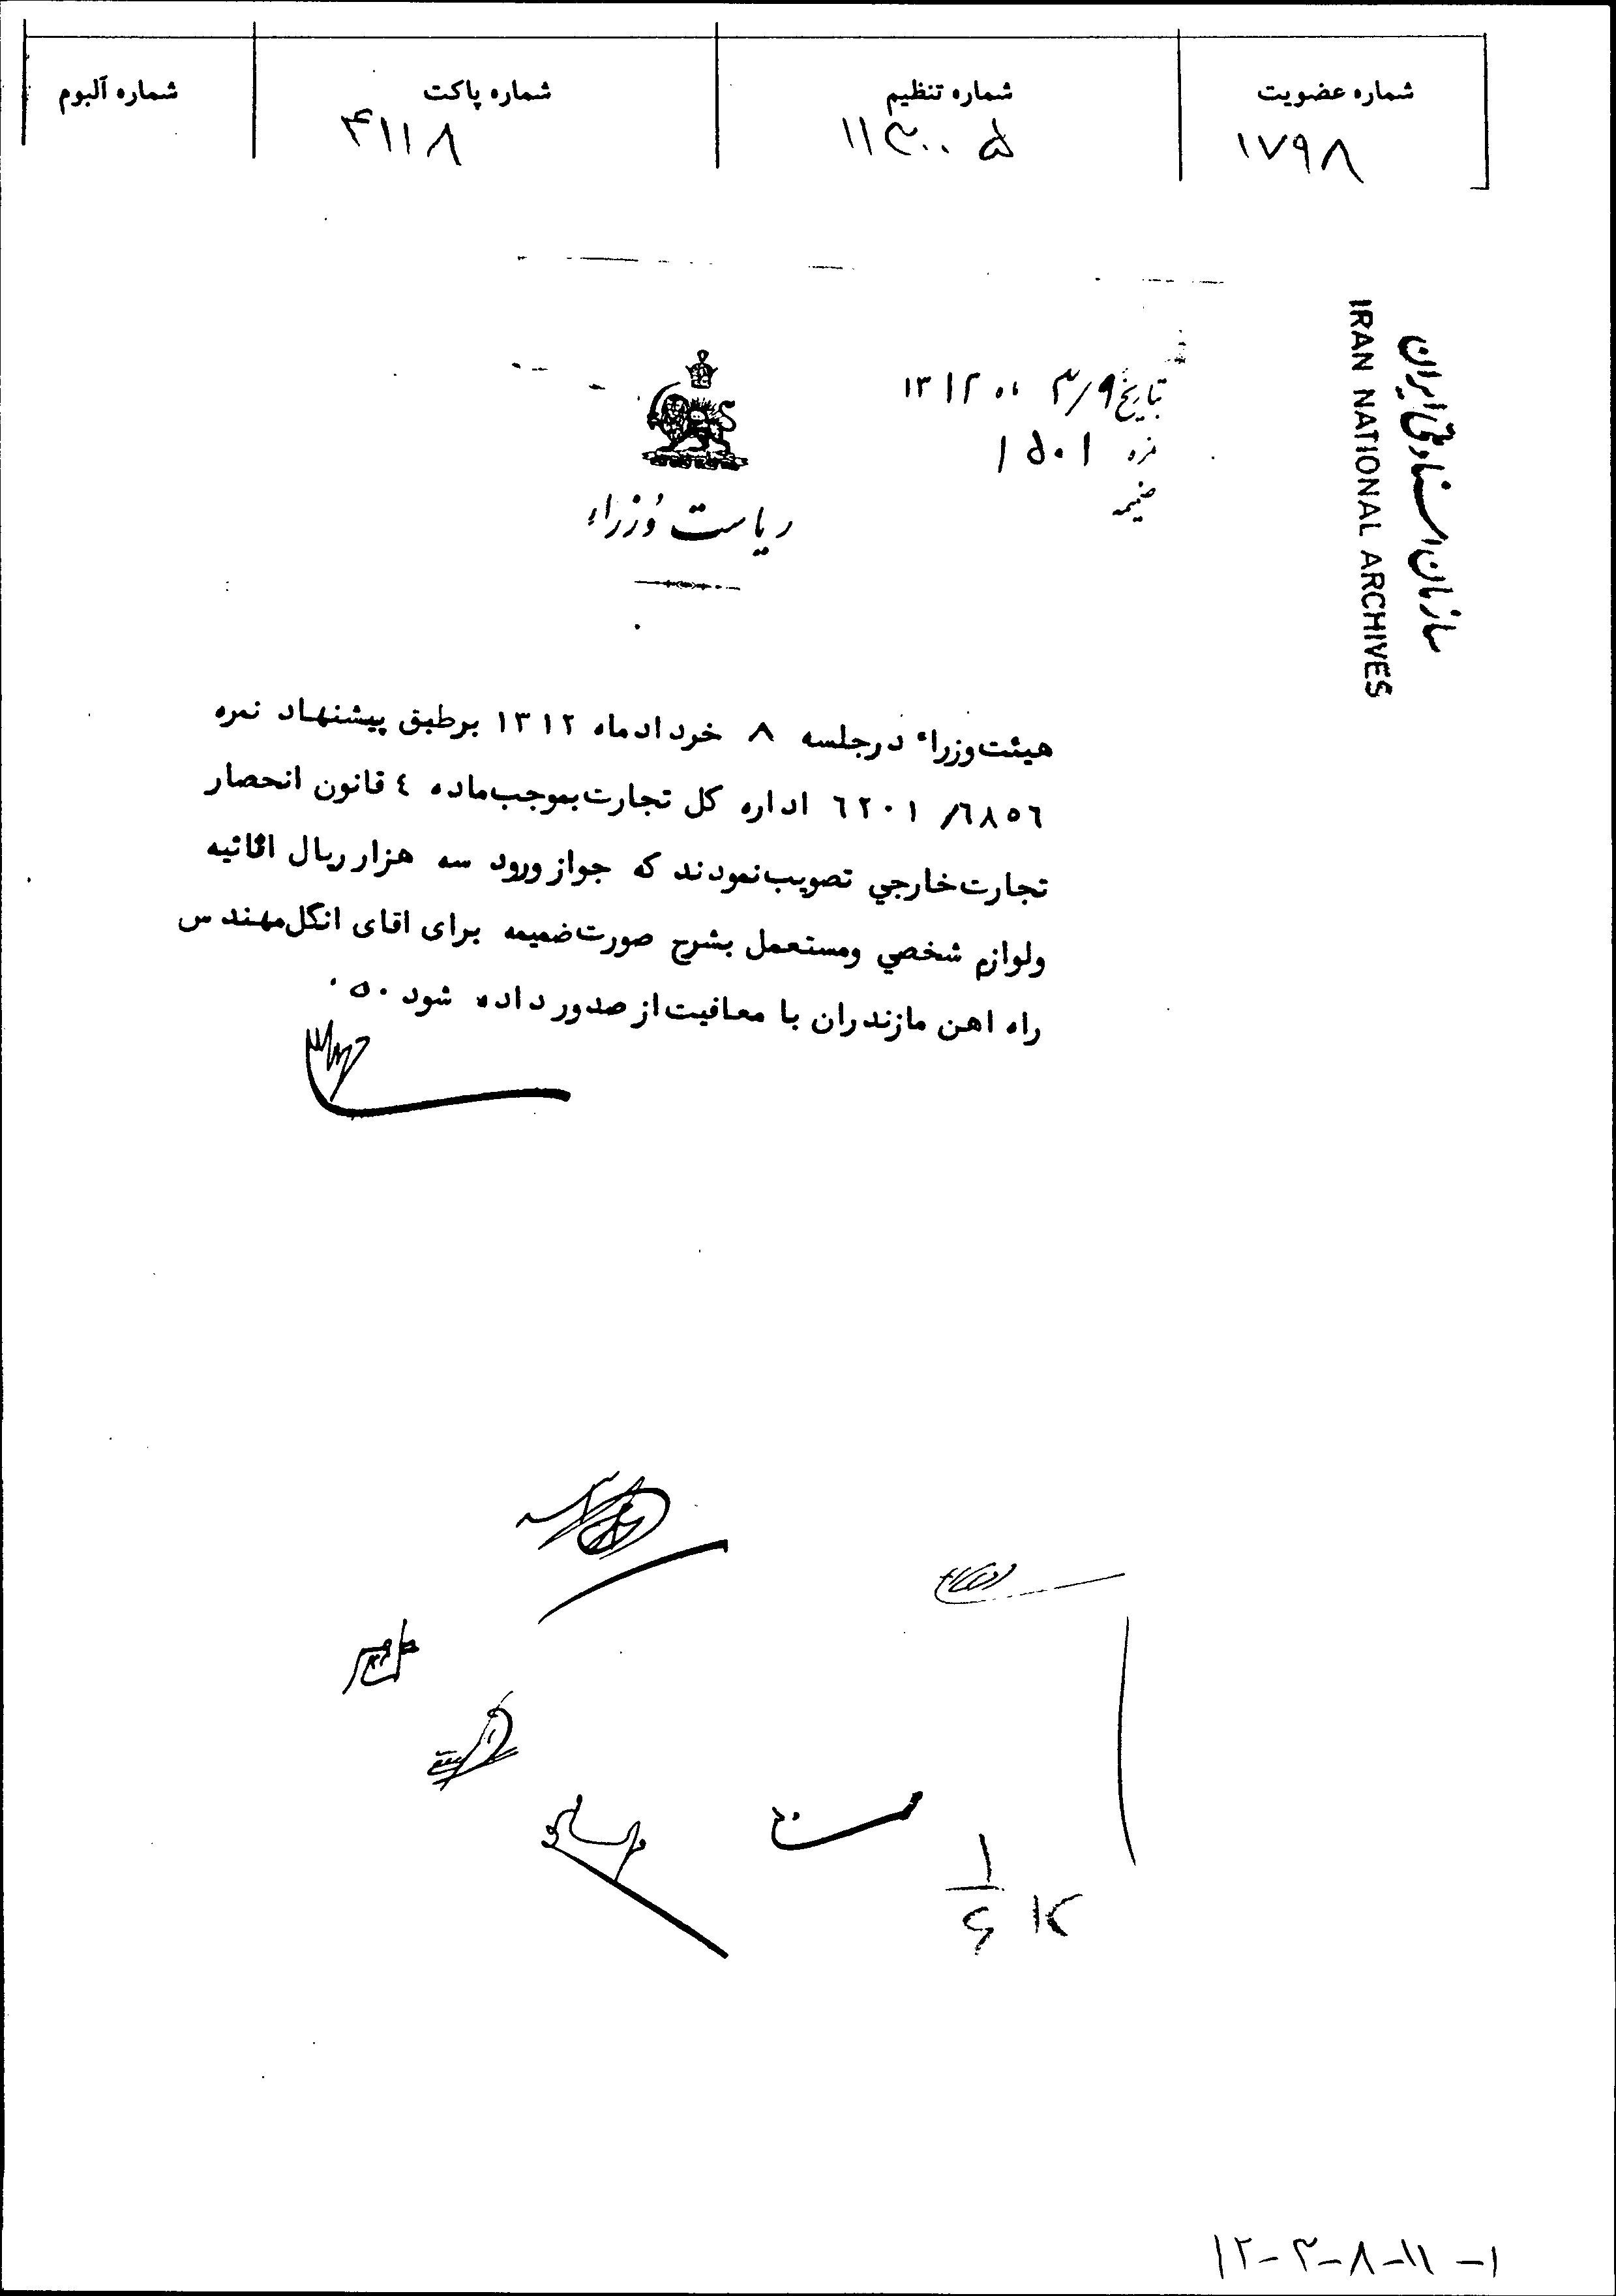 شماره عضویت
۱۷۹۸
شماره تنظیم
۱۱۳۰۰۵
شماره پاکت
۴۱۱۸
شماره آلبوم
سازمان اسناد ملی ایران
IRAN NATIONAL ARCHIVES
تاریخ ۳/۹ ماه ۱۳۱۲
نمره ۱۵۰۱
ضمیمه
ریاست وزراء
هیئت وزراء درجلسه ۸ خردادماه ۱۳۱۲ برطبق پیشنهاد نمره
٦٨٥٦/ ٦٢٠١ اداره کل تجارت بموجب ماده ٤ قانون انحصار
تجارت خارجي تصویب نمودند که جواز ورود سه هزار ریال اثاثیه
ولوازم شخصي ومستعمل بشرح صورت ضمیمه برای اقای انگل مهندس
راه اهن مازندران با معافیت از صدور داده شود ٥٠
۱۲-۳-۸-۱۱-۱